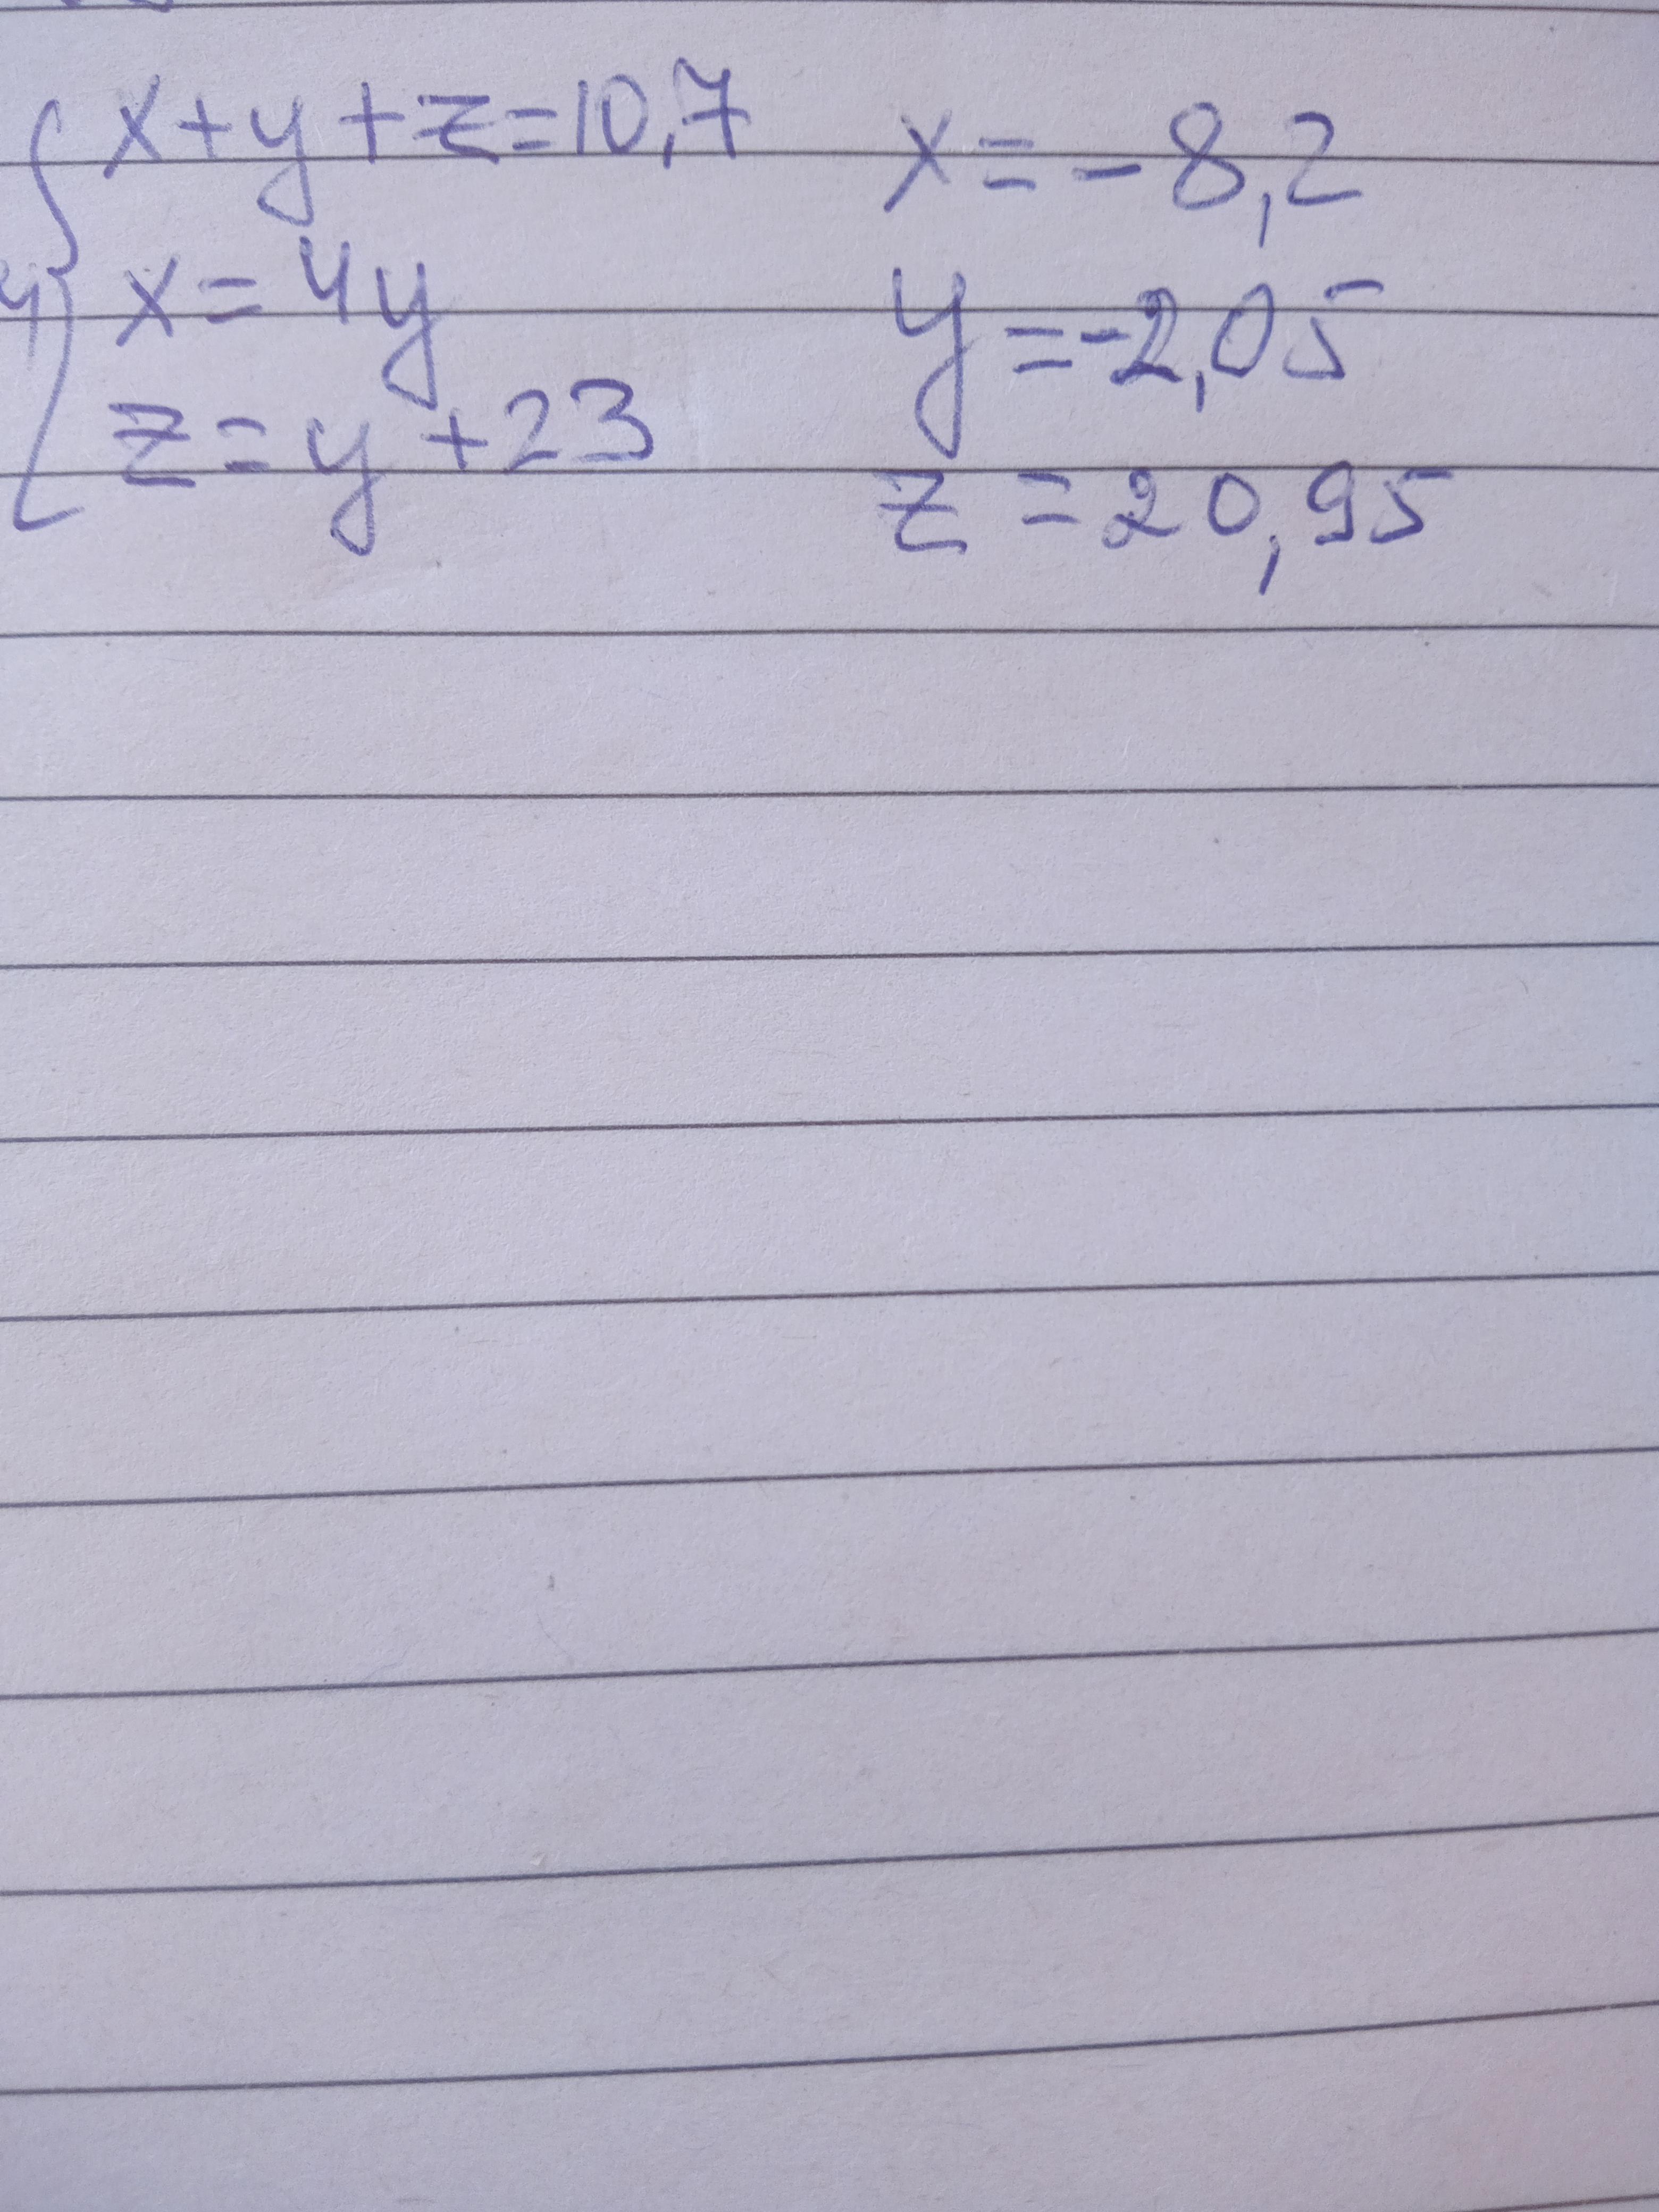 x+y+z=10,7
x=4y
z=y+23
x=-8,2
y=-2,05
z=20,95